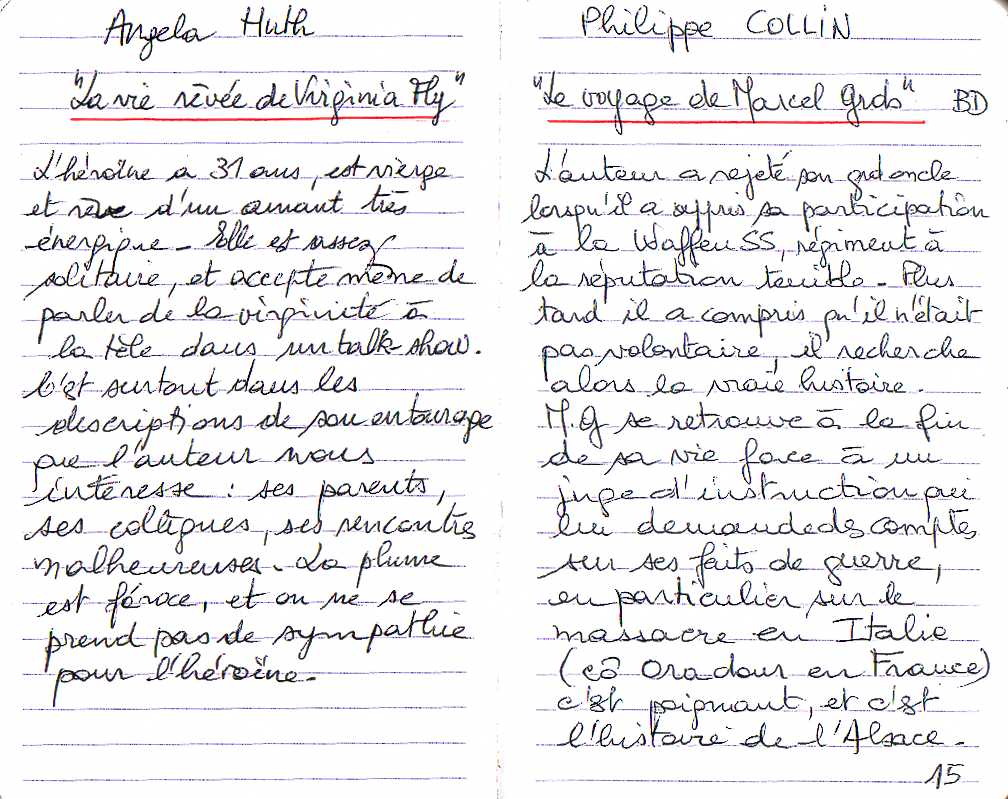 Angela Huth
"La vie rêvée de Virginia Fly"
L'héroïne a 31 ans, est vierge
et rêve d'un amant très
énergique - Elle est assez
solitaire, et accepte même de
parler de la virginité à
la télé dans un talk show.
C'est surtout dans les
descriptions de son entourage
que l'auteur nous
intéresse : ses parents,
ses collègues, ses rencontres
malheureuses. La plume
est féroce, et on ne se
prend pas de sympathie
pour l'héroïne.
Philippe COLLIN
"Le voyage de Marcel Grob" BD
L'auteur a rejeté son grd oncle
lorsqu'il a appris sa participation
à la Waffen SS, régiment à
la réputation terrible - Plus
tard il a compris qu'il n'était
pas volontaire, il recherche
alors la vraie histoire.
M.G se retrouve à la fin
de sa vie face à un
juge d'instruction qui
lui demande ds comptes
sur ses faits de guerre,
en particulier sur le
massacre en Italie
(cô Oradour en France)
c'est poignant, et c'est
l'histoire de l'Alsace.
15